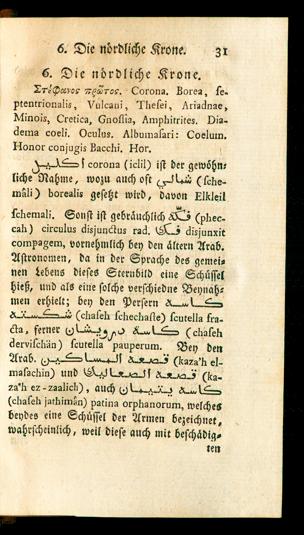 6. Die nördliche Krone. 31
6. Die nördliche Krone.
Στέφανος πρῶτος. Corona. Borea, se-
ptentrionalis, Vulcani, Thesei, Ariadnae,
Minois, Cretica, Gnossia, Amphitrites. Dia-
dema coeli. Oculus. Albumasari: Coelum.
Honor conjugis Bacchi. Hor.
اكليل corona (iclil) ist der gewöhn-
liche Nahme, wozu auch oft شمالي (sche-
mâli) borealis gesetzt wird, davon Elkleil
schemali. Sonst ist gebräuchlich فكّة (phec-
cah) circulus disjunctus rad. فك disjunxit
compagem, vornehmlich bey den ältern Arab.
Astronomen, da in der Sprache des gemei-
nen Lebens dieses Sternbild eine Schüssel
hieß, und als eine solche verschiedne Beynah-
men erhielt; bey den Persern كاسه
شكسته (chaseh schechaste) scutella fra-
cta, ferner كاسه درويشان (chaseh
dervischàn) scutella pauperum. Bey den
Arab. قصعة المساكين (kaza'h el-
masachin) und قصعة الصعاليك (ka-
za'h ez-zaalich), auch كاسه يتيمان
(chaseh jathimân) patina orphanorum, welches
beydes eine Schüssel der Armen bezeichnet,
wahrscheinlich, weil diese auch mit beschädig-
ten